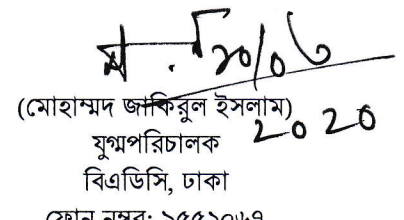 ২০/০৬
(মোহাম্মদ জাকিরুল ইসলাম)
২০২০
যুগ্মপরিচালক
বিএডিসি, ঢাকা
ফোন নম্বর: ৯৫৫২০৬৭